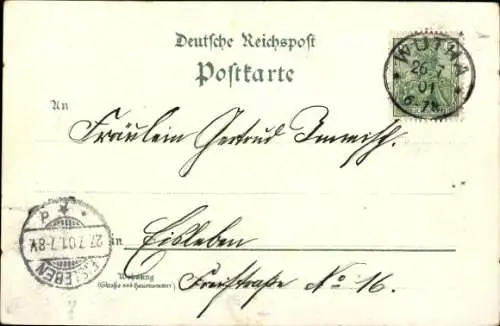 Deutsche Reichspost
Postkarte
WUTHA
26 7
01
6-7N
An
Fräulein Gertrud
in Eisleben
Wohnung
(Straße und Hausnummer)
Freistraße No 16.
EISLEBEN
27.7.01.7-8V.